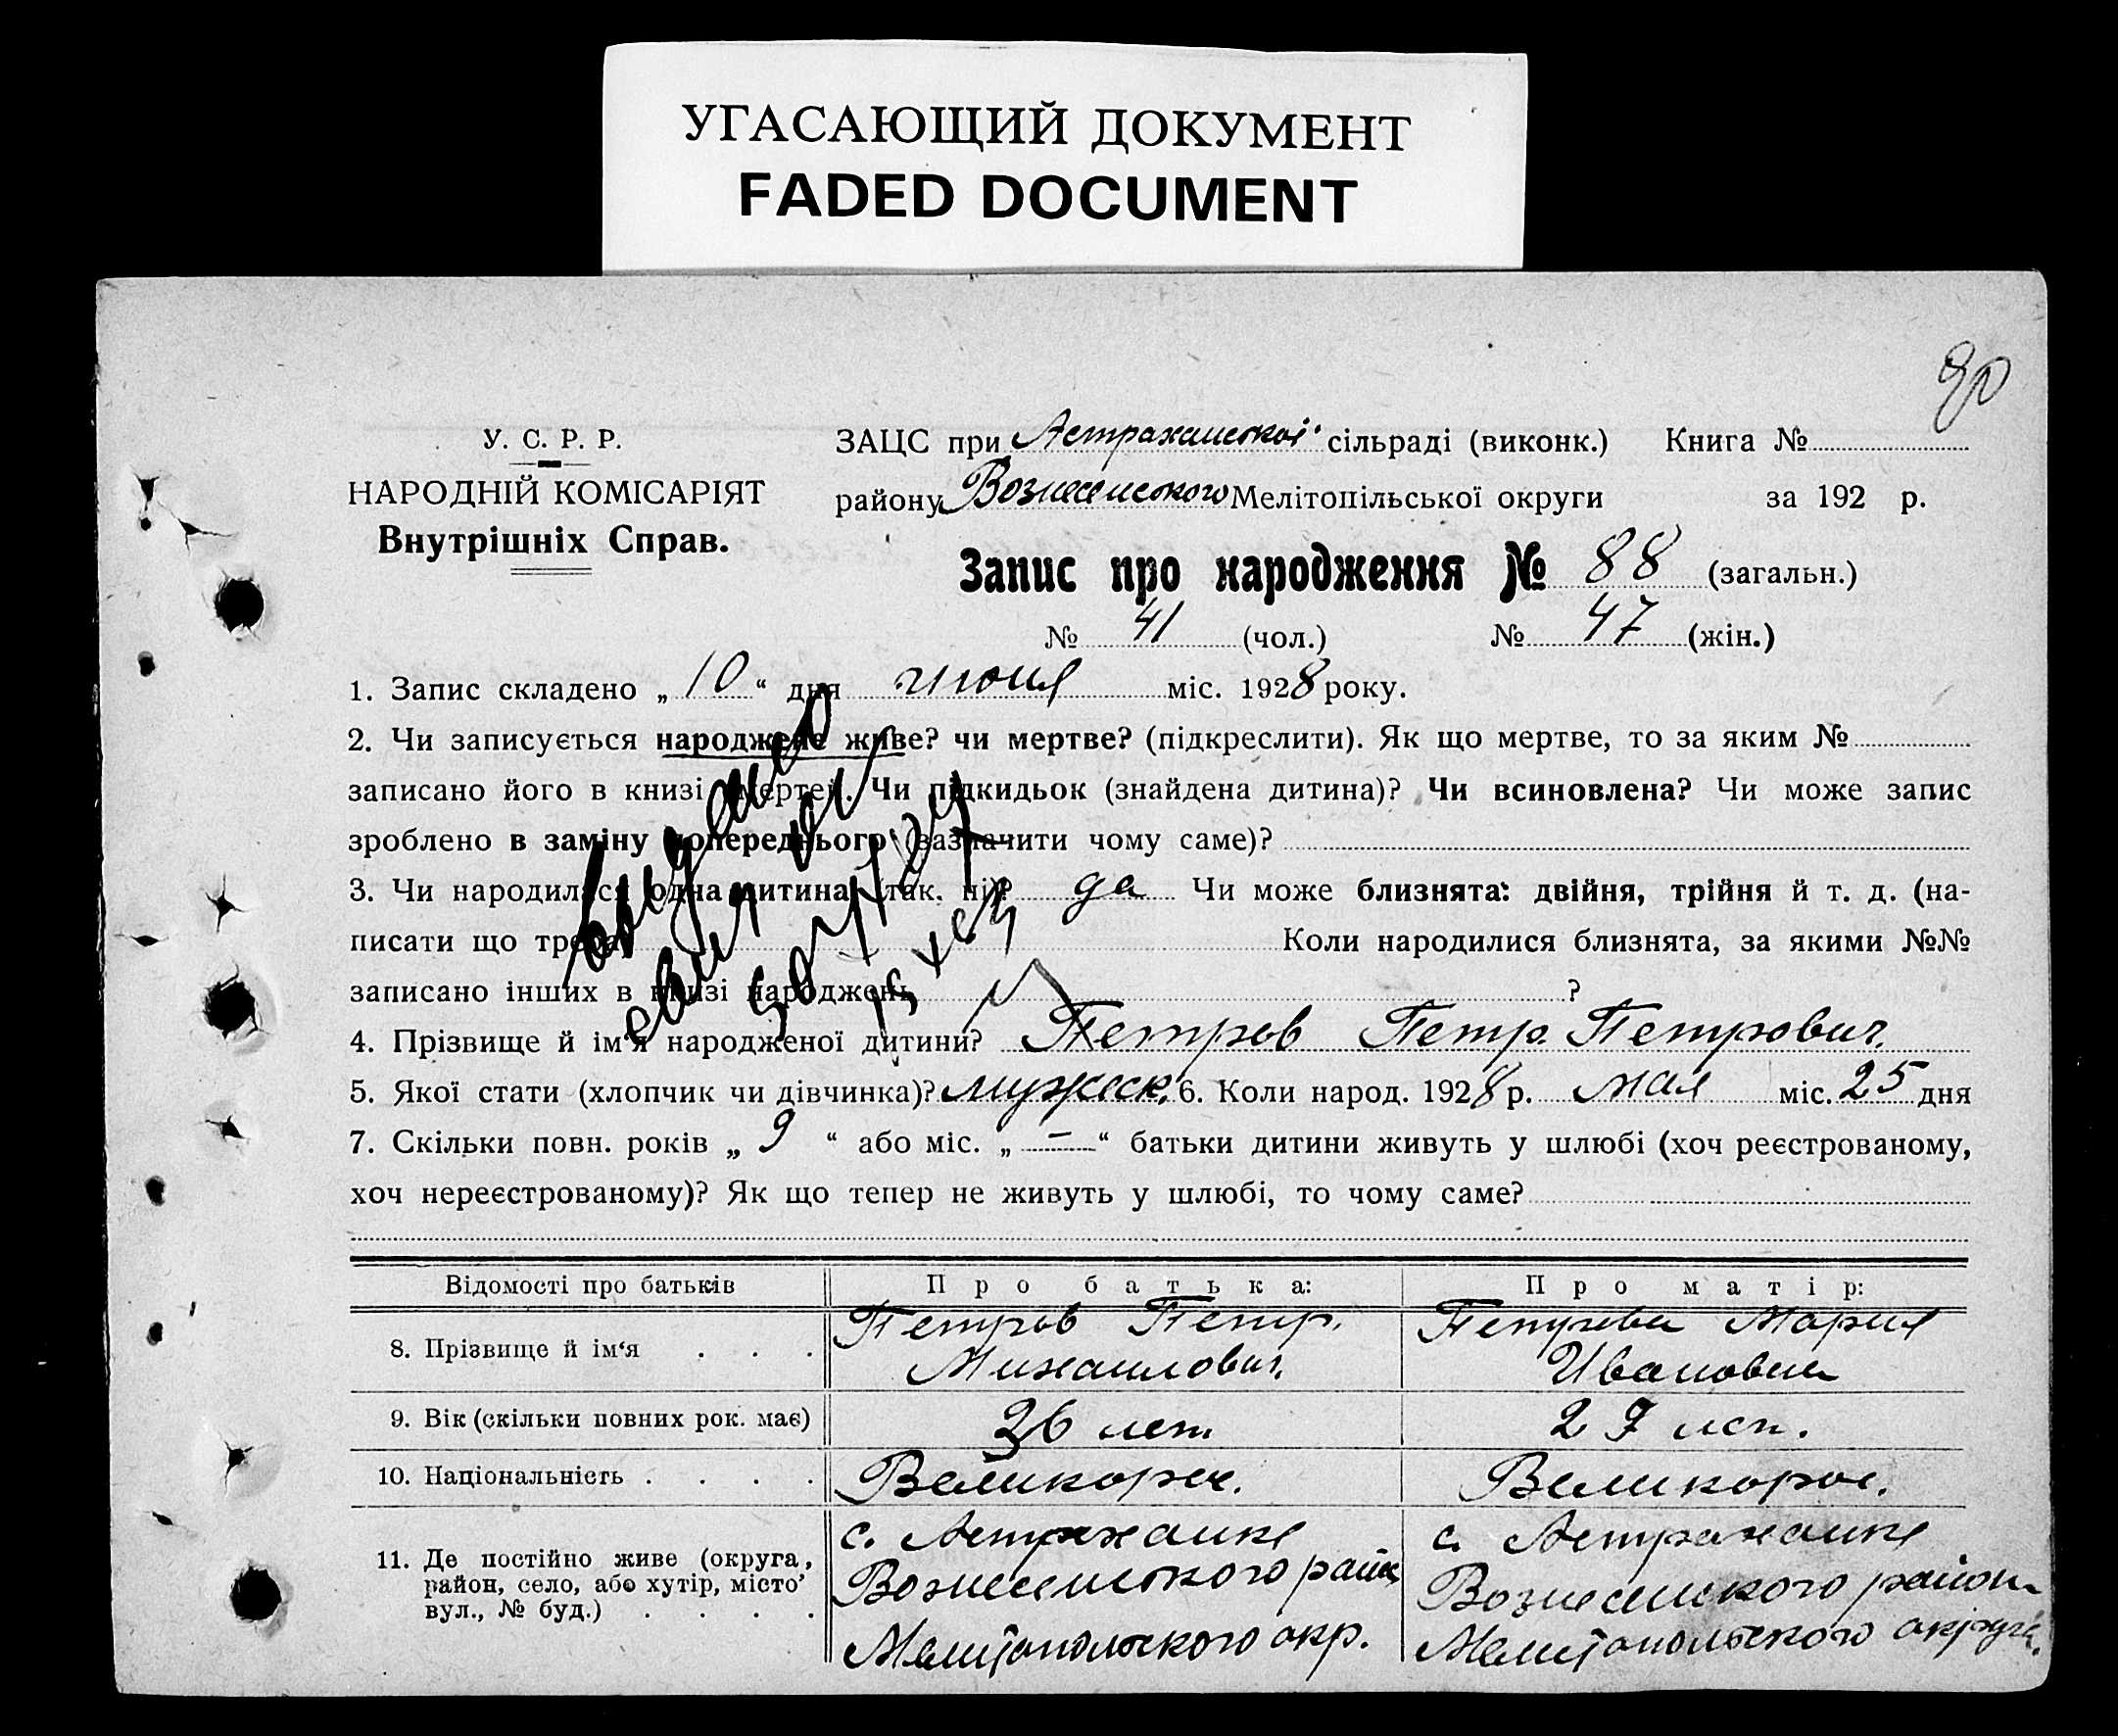 УГАСАЮЩИЙ ДОКУМЕНТ
FADED DOCUMENT
90
У. С. Р. Р.
НАРОДНІЙ КОМІСАРІЯТ
Внутрішніх Справ.
ЗАЦС при Астраханській сільраді (виконк.) Книга №
району Вознесенського Мелітопільської округи за 192 р.
Запис про народження № 88 (загальн.)
№ 41 (чол.) № 47 (жін.)
1. Запис складено „ 10 “ дня июня міс. 1928 року.
2. Чи записується народжене живе? чи мертве? (підкреслити). Як що мертве, то за яким №
записано його в книзі смертей. Чи підкидьок (знайдена дитина)? Чи всиновлена? Чи може запис
зроблено в заміну попереднього (зазначити чому саме)?
3. Чи народилася одна дитина (так, ні)? да Чи може близнята: двійня, трійня й т. д. (на-
писати що треба) Коли народилися близнята, за якими №№
записано інших в книзі народжень ?
4. Прізвище й ім'я народженої дитини? Петров Петр. Петрович.
5. Якої стати (хлопчик чи дівчинка)? мужеск. 6. Коли народ. 1928 р. мая міс. 25 дня
7. Скільки повн. років „ 9 “ або міс. „ — “ батьки дитини живуть у шлюбі (хоч реєстрованому,
хоч нереєстрованому)? Як що тепер не живуть у шлюбі, то чому саме?
Відомості про батьків Про батька: Про матір:
8. Прізвище й ім‘я . . . Петров Петр. Михаилович. Петрова Мария Ивановна
9. Вік (скільки повних рок. має) 36 лет. 27 лет.
10. Національність . . . . Великорос. Великорос.
11. Де постійно живе (округа, район, село, або хутір, місто, вул., № буд.) . . . .
с. Астраханке
Вознесенского район
Мелитопольского окр.
с. Астраханке
Вознесенского район
Мелитопольского округа.
выдано